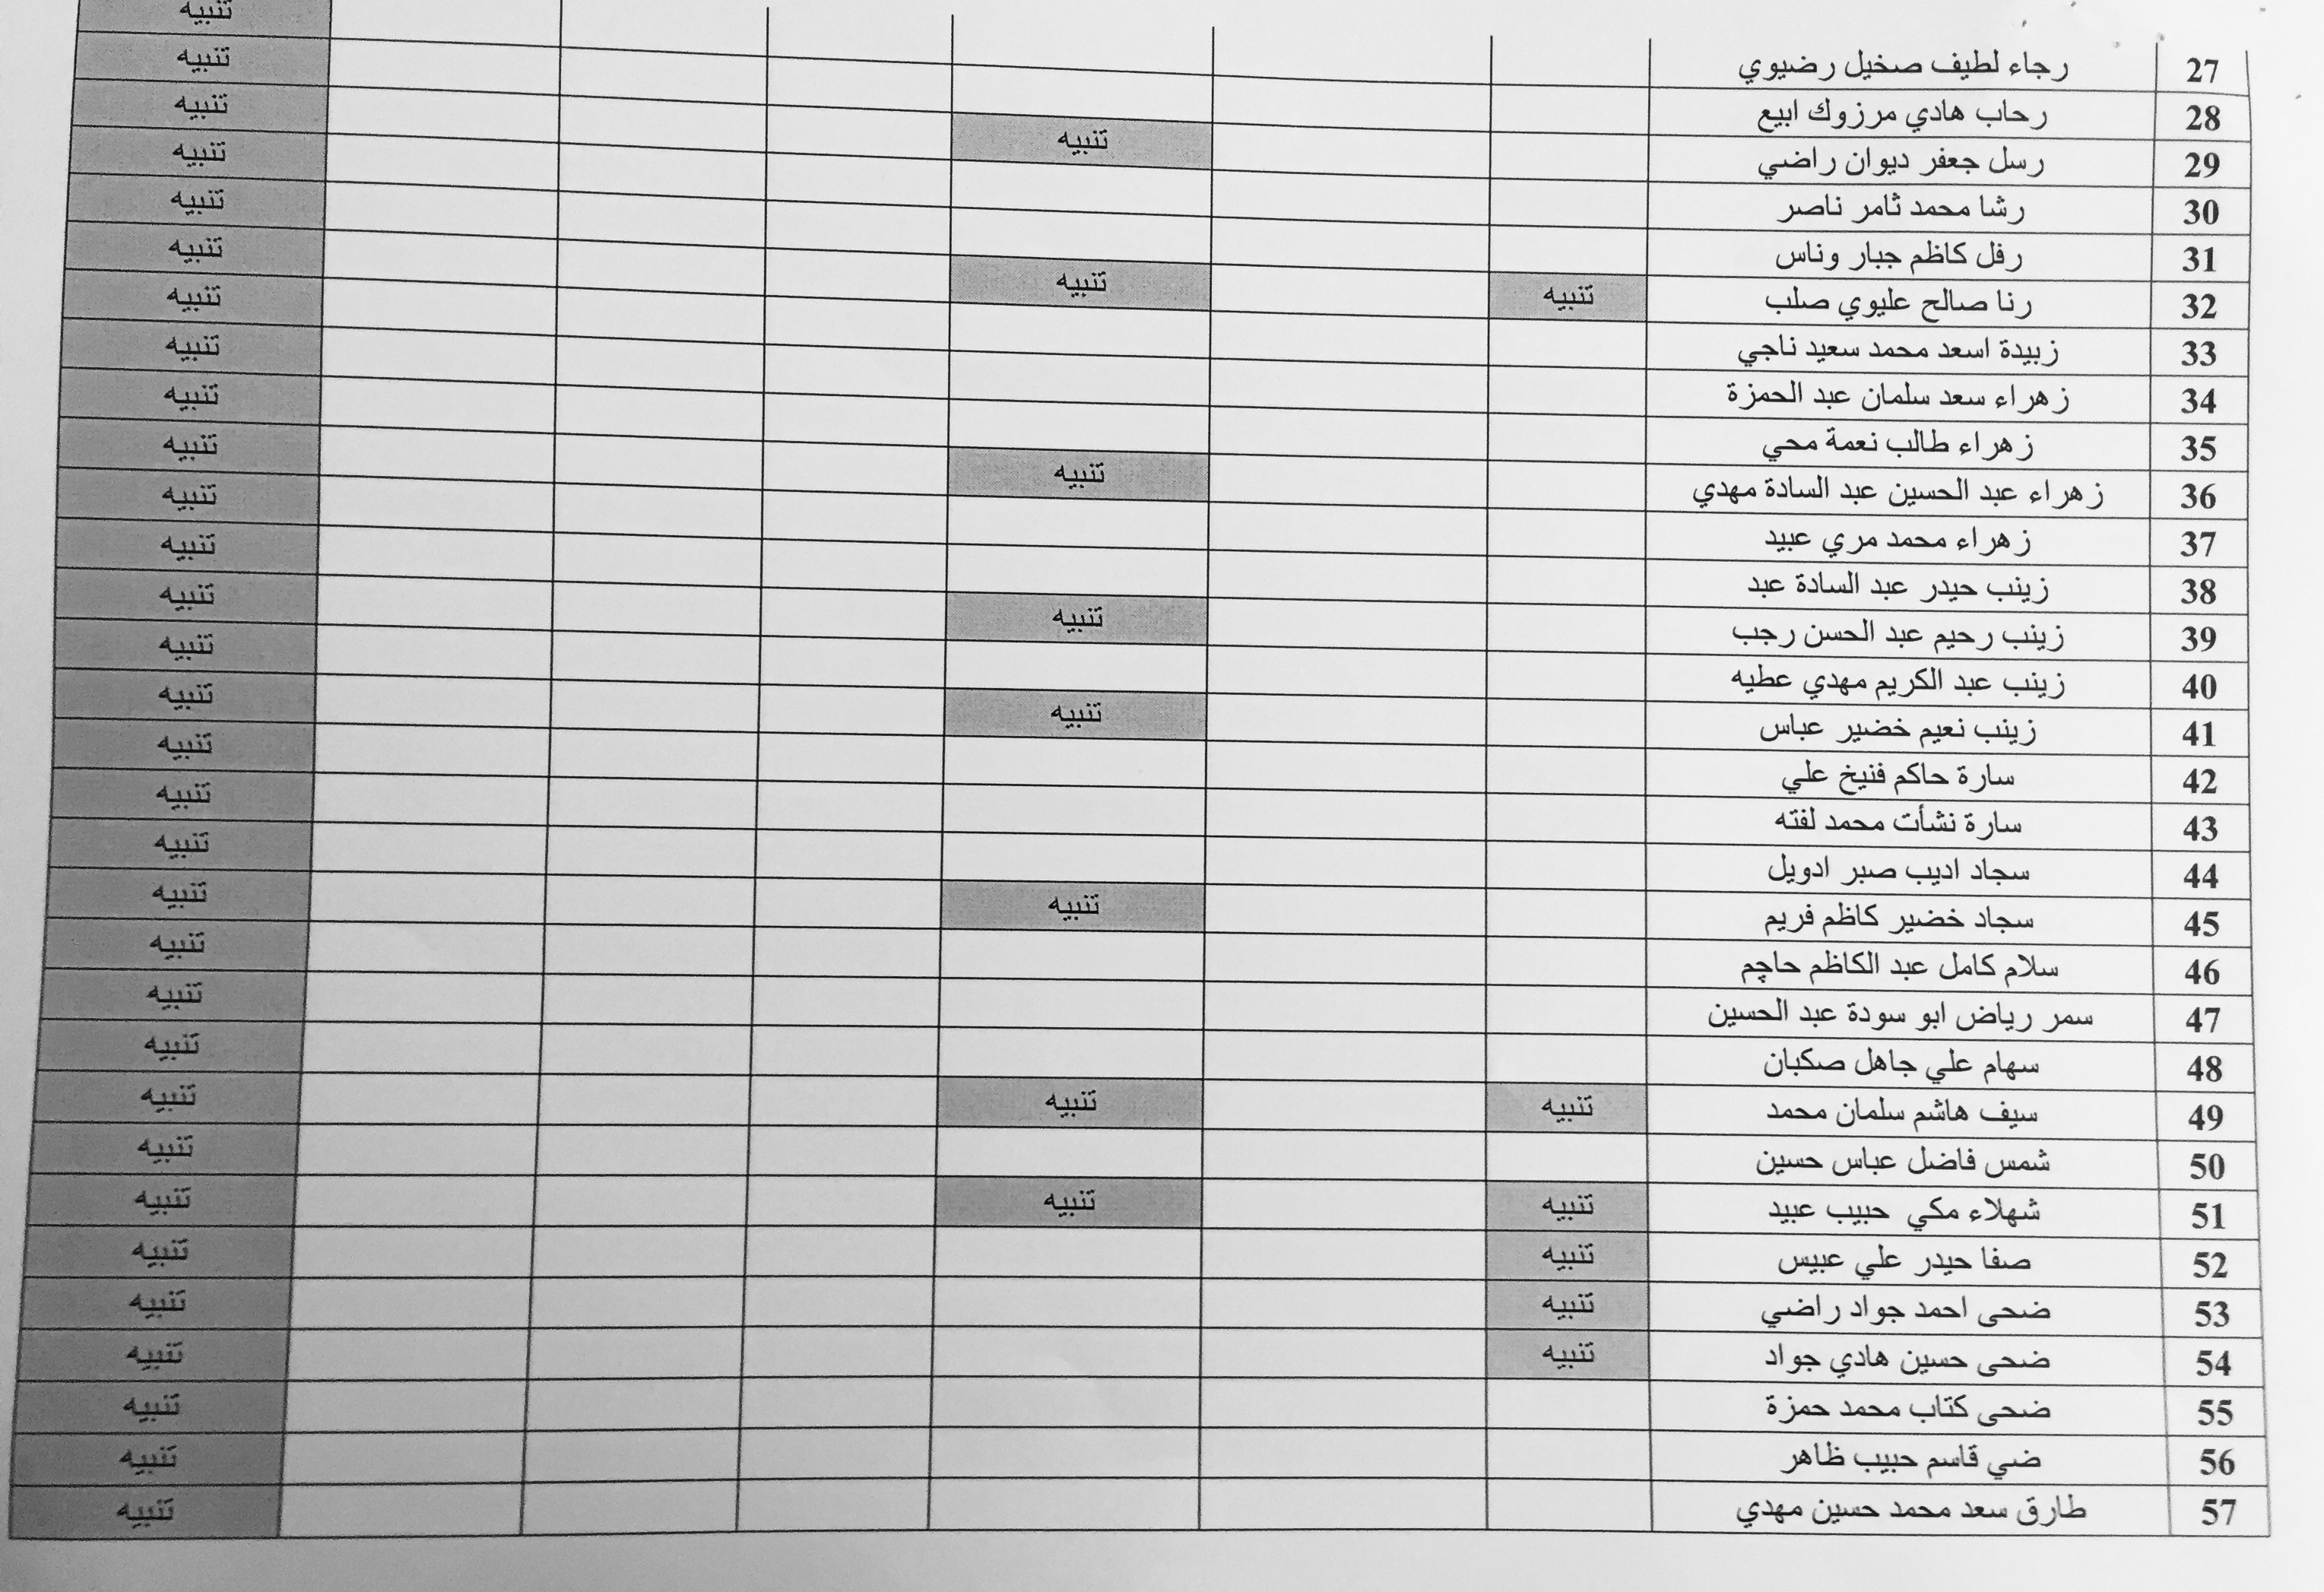 27 رجاء لطيف صخيل رضيوي تنبيه
28 رحاب هادي مرزوك ابيع تنبيه
29 رسل جعفر ديوان راضي تنبيه تنبيه
30 رشا محمد ثامر ناصر تنبيه
31 رفل كاظم جبار وناس تنبيه
32 رنا صالح عليوي صلب تنبيه تنبيه تنبيه
33 زبيدة اسعد محمد سعيد ناجي تنبيه
34 زهراء سعد سلمان عبد الحمزة تنبيه
35 زهراء طالب نعمة محي تنبيه
36 زهراء عبد الحسين عبد السادة مهدي تنبيه تنبيه
37 زهراء محمد مري عبيد تنبيه
38 زينب حيدر عبد السادة عبد تنبيه
39 زينب رحيم عبد الحسن رجب تنبيه تنبيه
40 زينب عبد الكريم مهدي عطيه تنبيه
41 زينب نعيم خضير عباس تنبيه تنبيه
42 سارة حاكم فنيخ علي تنبيه
43 سارة نشأت محمد لفته تنبيه
44 سجاد اديب صبر ادويل تنبيه
45 سجاد خضير كاظم فريم تنبيه تنبيه
46 سلام كامل عبد الكاظم حاچم تنبيه
47 سمر رياض ابو سودة عبد الحسين تنبيه
48 سهام علي جاهل صكبان تنبيه
49 سيف هاشم سلمان محمد تنبيه تنبيه تنبيه
50 شمس فاضل عباس حسين تنبيه
51 شهلاء مكي حبيب عبيد تنبيه تنبيه تنبيه
52 صفا حيدر علي عبيس تنبيه تنبيه
53 ضحى احمد جواد راضي تنبيه تنبيه
54 ضحى حسين هادي جواد تنبيه تنبيه
55 ضحى كتاب محمد حمزة تنبيه
56 ضي قاسم حبيب ظاهر تنبيه
57 طارق سعد محمد حسين مهدي تنبيه